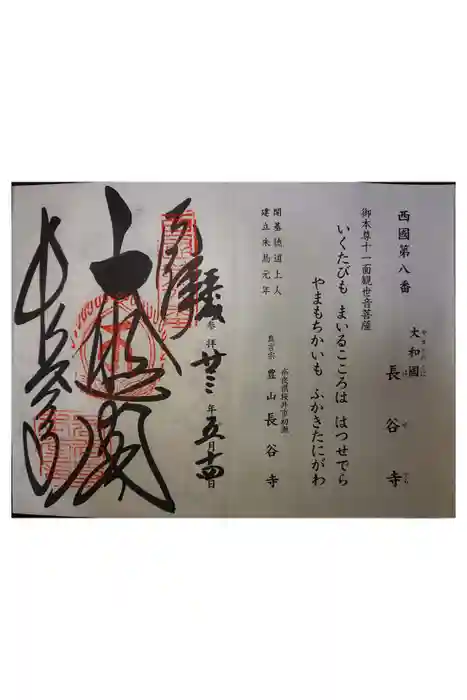 西國第八番
大和國 長谷寺
やまとのくに はせでら
御本尊十一面観世音菩薩
いくたびも まいるこころは はつせでら
やまもちかいも ふかきたにがわ
開基徳道上人
建立朱鳥元年
奈良県桜井市初瀬
真言宗 豊山長谷寺
奉拝 廿三年五月十四日
大悲閣
長谷寺